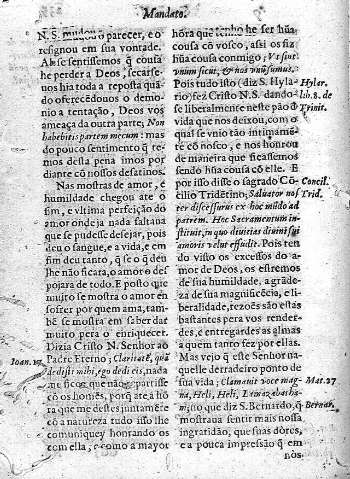 Mandato.
N. S. mudou o parecer, e o
resignou em sua vontade.
Ah se sentissemos q̃ cousa
he perder a Deos, secarse
nos hia toda a reposta quã
do oferecẽdonos o demo-
nio a tentação, Deos vos
ameaça da outra parte, Non
habebitis partem mecum: mas
tam pouco sentimento q̃ te-
mos desta pena imos por
diante cõ nossos desatinos.
Nas mostras de amor, e
humildade chegou ate o
fim, e vltima perfeição do
amor onde ja nada faltaua
que se pudesse desejar, pois
deu o sangue, e a vida, e em
fim deu tanto, q̃ se o q̃ deu
lhe não ficara, o amor o des
pojara de todo. E posto que
muito se mostra o amor em
sofrer por quem ama, tam-
bẽ se mostra em saber dar
muito pera o enriquecer.
Dizia Cristo N. Senhor ao
Ioan. 17
Padre Eterno; Claritatẽ, quã
dedisti mihi, ego dedi eis, nada
me ficou que não partisse
cõ os homẽs, porque ate a hõ
ra que me destes juntamẽte
cõ a natureza tudo isso lhe
comuniquey honrando os
com ella, e como a mayor
hõra que tenho he ser hũa
cousa cõ vosco, assi os fiz
hũa cousa comigo; Vt sint
vnum sicut, & nos vnũ sumus.
Pois tudo isto (diz S. Hyla-
Hylar.
rio) fez Cristo N.S. dando-
lib. 8. de
se liberalmente neste pão d
Trinit.
vida que nos deixou, com o
qual se vnio tão intimamẽ-
te cõ nosco, e nos honrou
de maneira que ficassemos
sendo hũa cousa cõ elle. E
por isso disse o sagrado Cõ-
Concil.
cilio Tridẽtino; Saluator nos
Trid.
ter discessurus ex hoc mũdo ad
patrem. Hoc Sacramentum in-
stituit, in quo diuitias diuini sui
amoris velut effudit. Pois ten
do visto os excessos do a-
mor de Deos, os estremos
de sua humildade, a grãde-
za de sua magnificẽcia, e li-
beralidade, rezoẽs são estas
bastantes pera vos render-
des, e entregardes as almas
a quem tanto fez por ellas.
Mas vejo q̃ este Senhor na-
quelle derradeiro ponto de
sua vida; clamauit voce mag-
Mat. 27
na, Heli, Heli, Lamazabatha-
ni, isto que diz S. Bernardo, q̃
Bernar.
mostraua sentir mais nossa
ingratidão, que suas dores,
e a pouca impressão q̃ em
nos